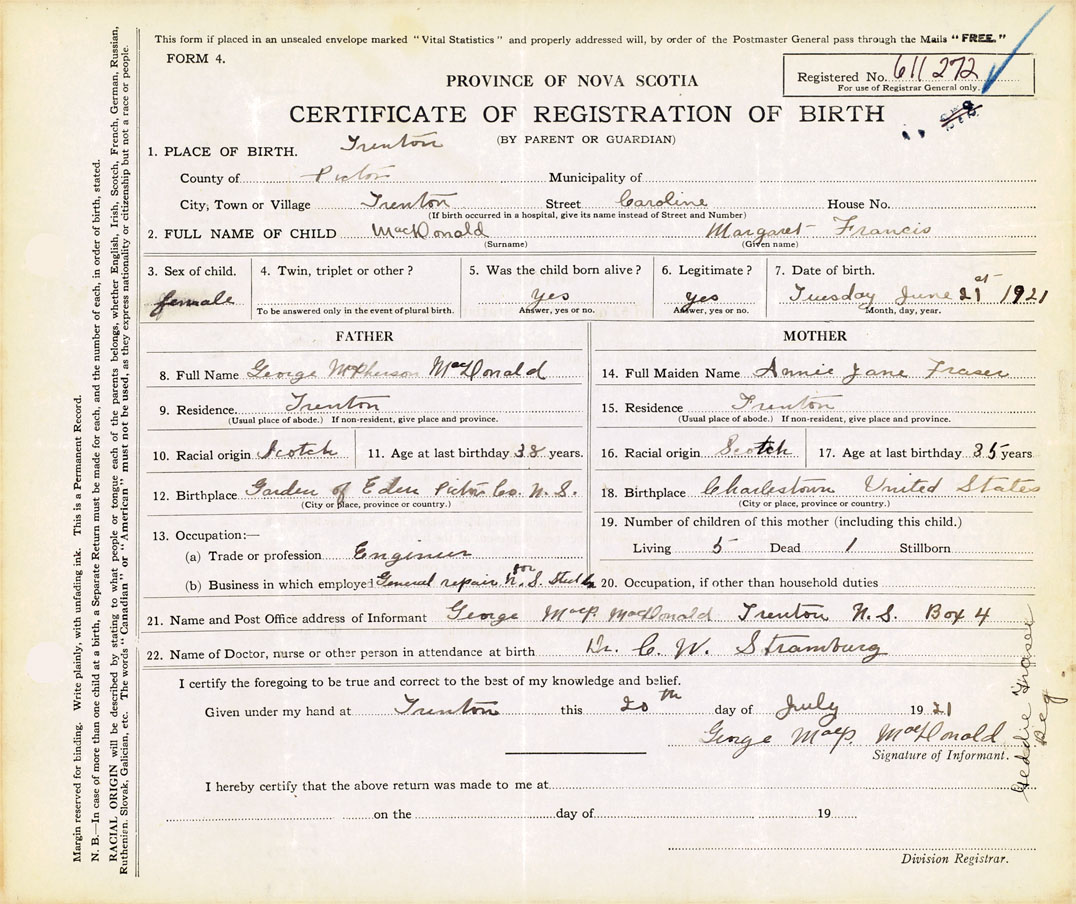 This form if placed in an unsealed envelope marked "Vital Statistics" and properly addressed will, by order of the Postmaster General pass through the Mails "FREE."
FORM 4.
Registered No. 611 272
For use of Registrar General only.
PROVINCE OF NOVA SCOTIA
CERTIFICATE OF REGISTRATION OF BIRTH
(BY PARENT OR GUARDIAN)
1. PLACE OF BIRTH. Trenton
County of Pictou Municipality of
City, Town or Village Trenton Street Caroline House No.
(If birth occurred in a hospital, give its name instead of Street and Number)
2. FULL NAME OF CHILD MacDonald Margaret Francis
(Surname) (Given name)
3. Sex of child. 4. Twin, triplet or other? 5. Was the child born alive? 6. Legitimate? 7. Date of birth.
female Yes yes Tuesday June 21st 1921
To be answered only in the event of plural birth. Answer, yes or no. Answer, yes or no. Month, day, year.
FATHER MOTHER
8. Full Name George McPherson MacDonald 14. Full Maiden Name Annie Jane Fraser
9. Residence. Trenton 15. Residence Trenton
(Usual place of abode.) If non-resident, give place and province. (Usual place of abode.) If non-resident, give place and province.
10. Racial origin Scotch 11. Age at last birthday 38 years. 16. Racial origin Scotch 17. Age at last birthday 35 years
12. Birthplace Garden of Eden Pictou Co. N. S. 18. Birthplace Charlestown United States
(City or place, province or country.) (City or place, province or country.)
13. Occupation:— 19. Number of children of this mother (including this child.)
(a) Trade or profession Engineer Living 5 Dead 1 Stillborn
(b) Business in which employed General repair for N. S. Steel 20. Occupation, if other than household duties
21. Name and Post Office address of Informant George MacP. MacDonald Trenton N. S. Box 4
22. Name of Doctor, nurse or other person in attendance at birth Dr. C. W. Stramburg
I certify the foregoing to be true and correct to the best of my knowledge and belief.
Given under my hand at Trenton this 20th day of July 1921
George MacP. MacDonald
Signature of Informant.
I hereby certify that the above return was made to me at
on the day of 19
Division Registrar.
Geddie Fraser
Reg.
Margin reserved for binding. Write plainly, with unfading ink. This is a Permanent Record.
N. B.—In case of more than one child at a birth, a Separate Return must be made for each, and the number of each, in order of birth, stated.
RACIAL ORIGIN will be described by stating to what people or tongue each of the parents belongs, whether English, Irish, Scotch, French, German, Russian,
Ruthenian, Slovak, Galician, etc. The words "Canadian" or "American" must not be used, as they express nationality or citizenship but not a race or people.